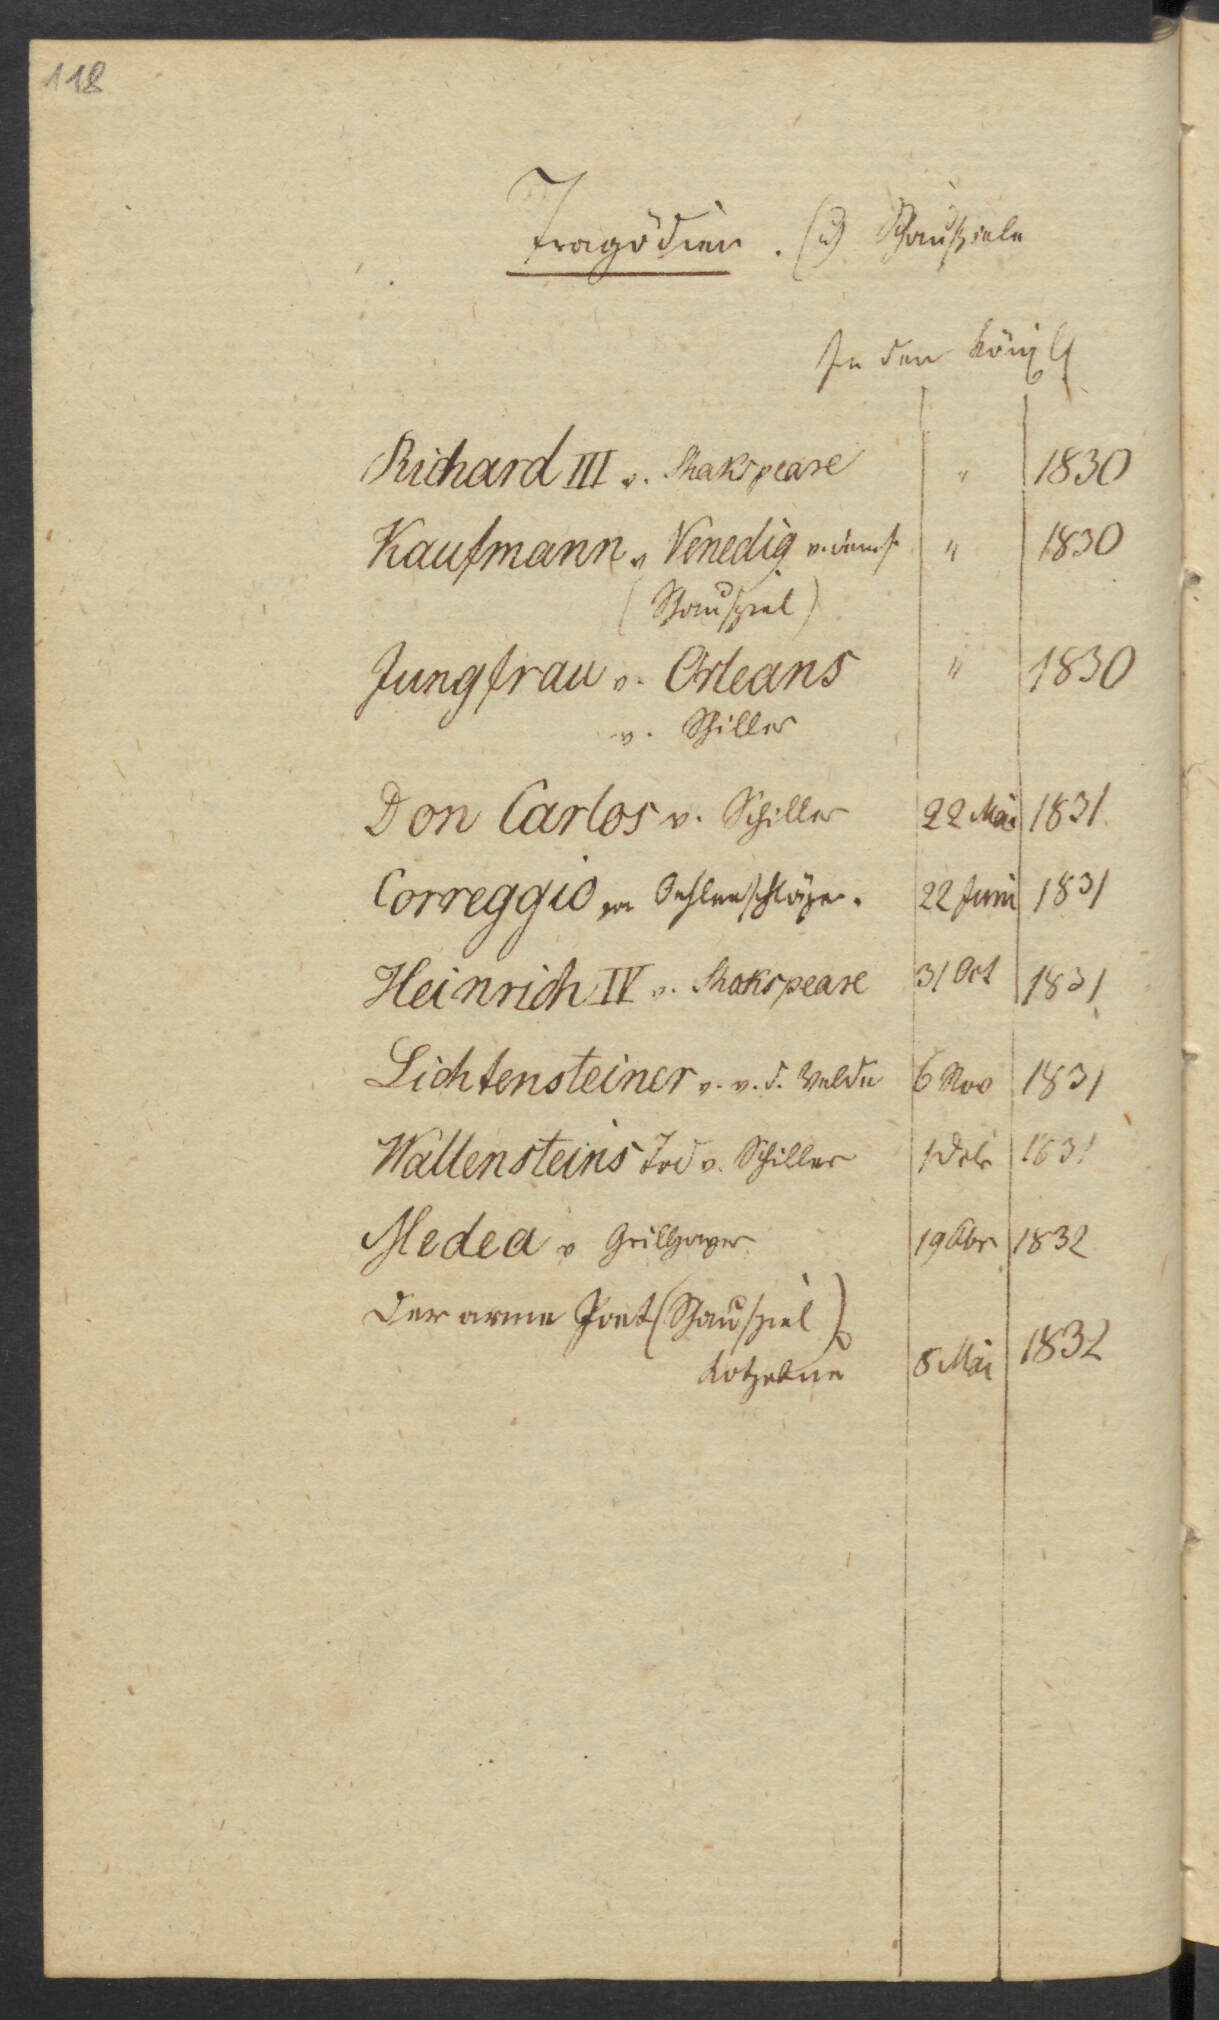 118
Tragödien. (u) Schauspiele
In den Königl
Richard III v. Shakspeare " 1830
Kaufmann v Venedig v. dems. " 1830
(Schauspiel)
Jungfrau v. Orleans " 1830
v. Schiller
Don Carlos v. Schiller 22 Mai 1831
Correggio von Oehlenschläger. 22 Juni 1831
Heinrich IV v. Shakspeare 31 Oct 1831
Lichtensteiner v. v. d. Velde 6 Nov 1831
Wallensteins Tod v. Schiller 1 Dcb 1831
Medea v Grillparzer 1832
Der arme Poet (Schauspiel)
Kotzebue 8 Mai 1832